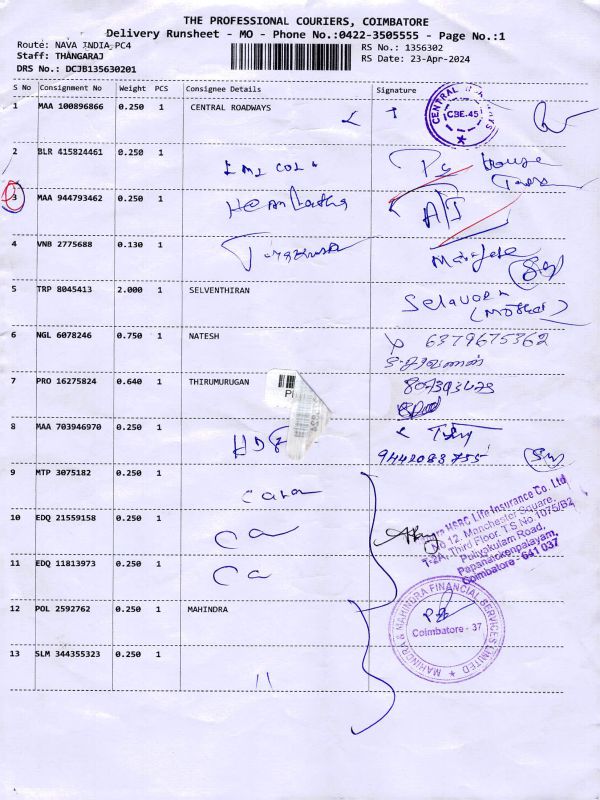 THE PROFESSIONAL COURIERS, COIMBATORE
Delivery Runsheet - MO - Phone No.:0422-3505555 - Page No.:1
Route: NAVA INDIA,PC4
Staff: THANGARAJ
DRS No.: DCJB135630201
RS No.: 1356302
RS Date: 23-Apr-2024
S No Consignment No Weight PCS Consignee Details Signature
1 MAA 100896866 0.250 1 CENTRAL ROADWAYS
CBE.45
2 BLR 415824461 0.250 1
3 MAA 944793462 0.250 1
4 VNB 2775688 0.130 1
5 TRP 8045413 2.000 1 SELVENTHIRAN
(Mother)
6 NGL 6078246 0.750 1 NATESH 6379675362
7 PRO 16275824 0.640 1 THIRUMURUGAN
8 MAA 703946970 0.250 1 HDF
9442083755
9 MTP 3075182 0.250 1
10 EDQ 21559158 0.250 1
11 EDQ 11813973 0.250 1
HSBC Life Insurance Co. Ltd
12, Manchester Square,
Third Floor, T.S No 1075/B2
Puliyakulam Road,
Papanaickenpalayam,
Coimbatore - 641 037
12 POL 2592762 0.250 1 MAHINDRA
MAHINDRA & MAHINDRA FINANCIAL SERVICES LIMITED
Coimbatore - 37
13 SLM 344355323 0.250 1 "